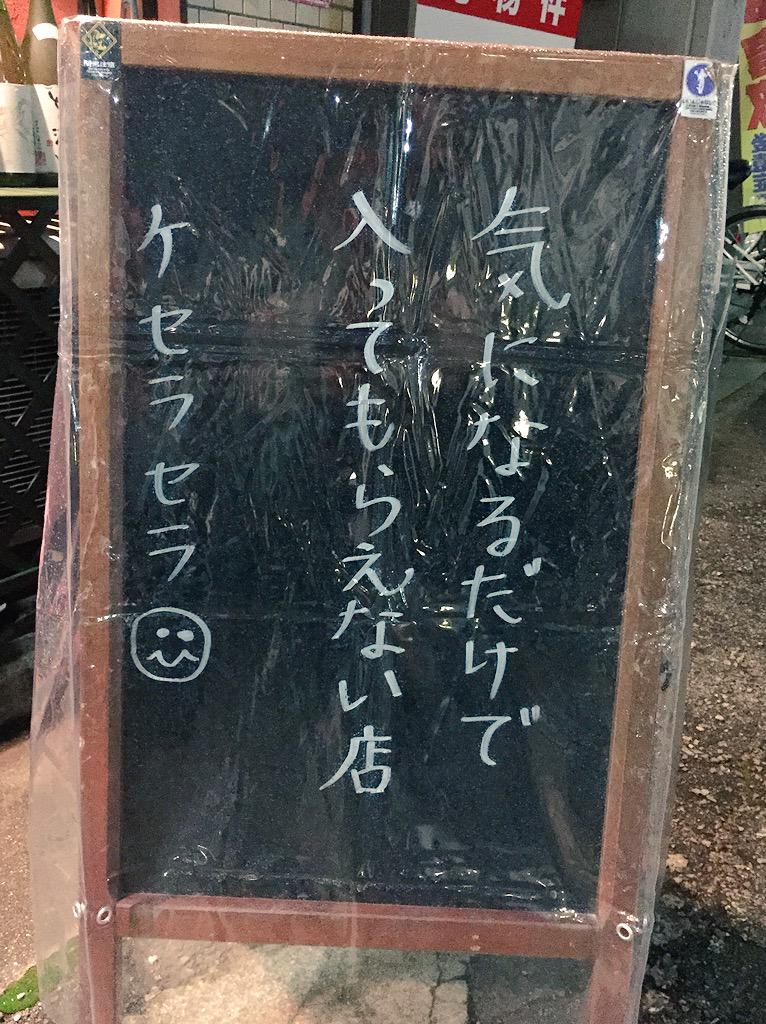 気になるだけで
入ってもらえない店
ケセラセラ
物件